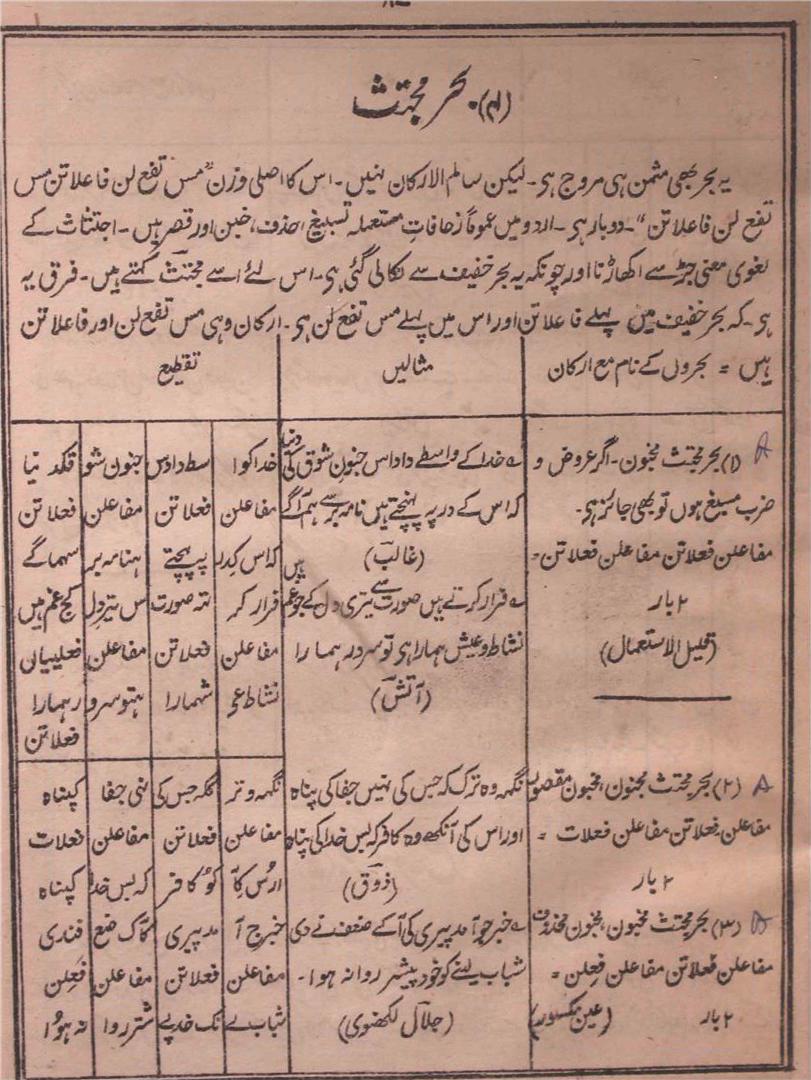 (۴) بحرِ مجتث
یہ بحر بھی مثمن ہی مروج ہی۔ لیکن سالم الارکان نہیں۔ اس کا اصلی وزن "مس تفع لن فاعلاتن مس
تفع لن فاعلاتن"۔ دوبار ہی۔ اردو میں عموماً زحافاتِ مستعملہ تسبیغ، حذف، خبن اور قصر ہیں۔ اجتثاث کے
لغوی معنی جڑ سے اکھاڑنا اور چونکہ یہ بحر خفیف سے نکالی گئی ہی۔ اس لئے اسے مجتث کہتے ہیں۔ فرق یہ
ہی۔ کہ بحر خفیف میں پہلے فاعلاتن اور اس میں پہلے مس تفع لن ہی۔ ارکان وہی مس تفع لن اور فاعلاتن
ہیں = بحروں کے نام مع ارکان
مثالیں
تقطیع
(۱) بحر مجتث مخبون۔ اگر عروض و
ضرب مسبغ ہوں تو بھی جائز ہی۔
مفاعلن فعلاتن مفاعلن فعلاتن۔
۲ بار
(قلیل الاستعمال)
خدا کے واسطے داد اس جنونِ شوق کی دنیا
کہ اس کے در پہ پہنچتے ہیں نامہ بر سے ہم آگے
(غالب)
قرار کرتے ہیں صورت سے تیری دل کے جو غم ہیں
نشاط و عیش ہمارا ہی تو سرور ہمارا
(آتش)
خدا کوا | سط دادس | جنون شو | قکد نیا
مفاعلن | فعلاتن | مفاعلن | فعلاتن
کہ اس کدر | پہ پہچتے | ہنامہ بر | سہماگے
قرار کر | تہ صورت | س تیر دل | کج غم ہیں
مفاعلن | فعلاتن | مفاعلن | فعلییاں
نشاط عو | شمارا | ہتو سرو | رہمارا
فعلاتن
(۲) بحر مجتث مخبون، مخبون مقصور
مفاعلن فعلاتن مفاعلن فعلات =
۲ بار
نگہ وہ ترک کہ جس کی نہیں جفا کی پناہ
اور اس کی آنکھ وہ کافر کہ بس خدا کی پناہ
(ذوق)
نگہ و تر | ککہ جس کی | نہی جفا | کپناہ
مفاعلن | فعلاتن | مفاعلن | فعلات
ارُس کآ | کو کافر | کہ بس خدا | کپناہ
(۳) بحر مجتث مخبون، مخبون محذوف
مفاعلن فعلاتن مفاعلن فعِلن =
۲ بار (عین مکسور)
خبر جو آمدِ پیری کی آ کے ضعف نے دی
شباب لینے کو خود پیشتر روانہ ہوا۔
(جلال لکھنوی)
خبر ج آ | مد پیری | کآک ضع | فندی
مفاعلن | فعلاتن | مفاعلن | فعِلن
شباب لے | نک خد پے | شتر روا | نہ ہوا